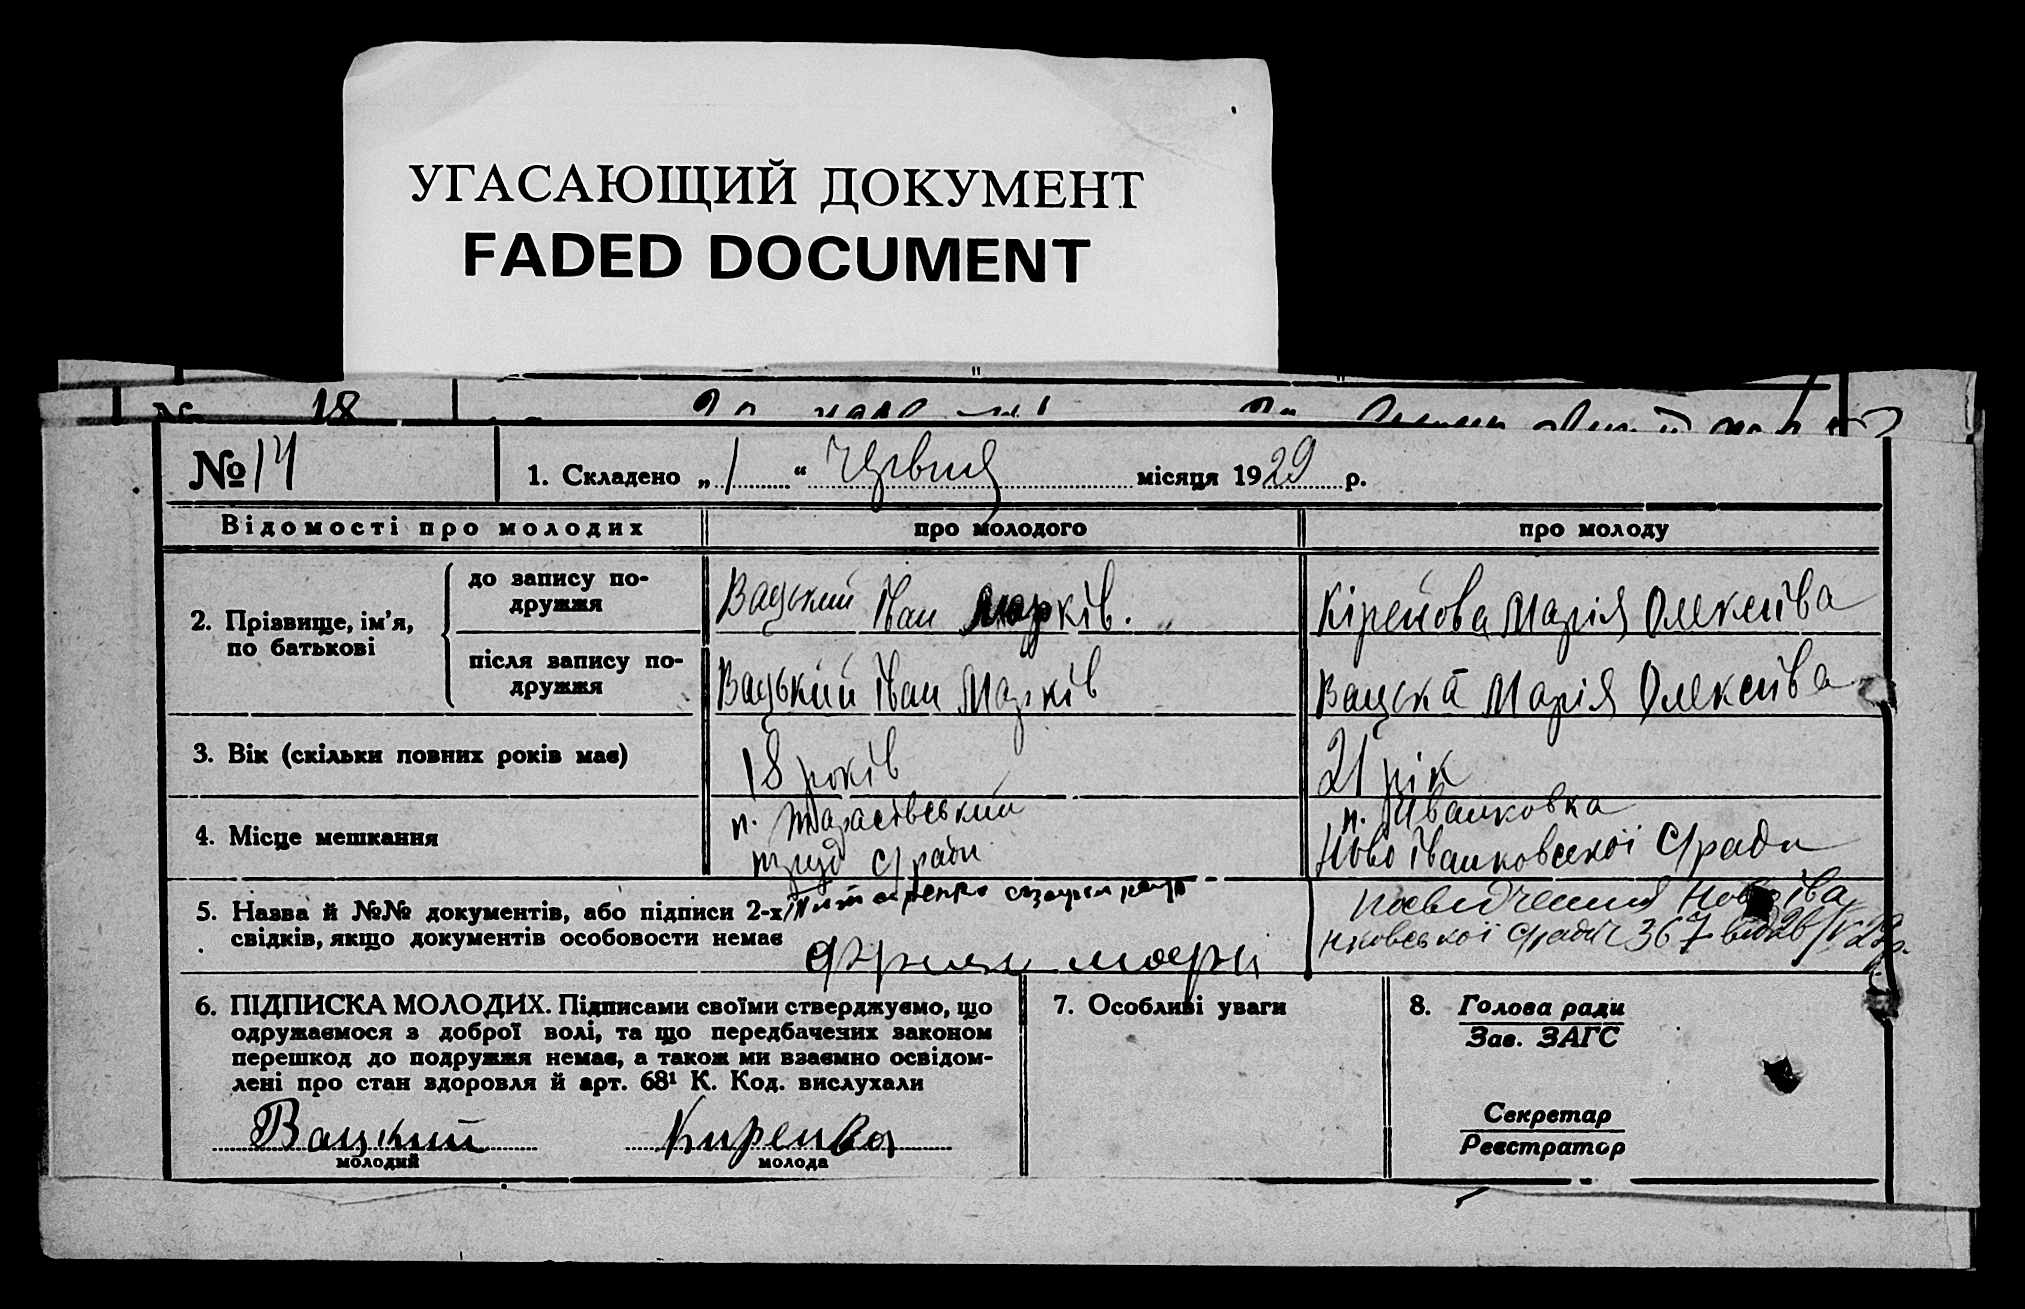 УГАСАЮЩИЙ ДОКУМЕНТ
FADED DOCUMENT
№ 18
№ 14
1. Складено „ 1 “ червня місяця 1929 р.
Відомості про молодих про молодого про молоду
2. Прізвище, ім’я, по батькові
до запису подружжя
Вацький Іван Марків.
Кірейова Марія Олексиїва
після запису подружжя
Вацький Іван Марків
Вацска Марія Олексиїва
3. Вік (скільки повних років має)
18 років
21 рік
4. Місце мешкання
п.
с/ради
п. Иванковка
Ново Іванковської С/ради
5. Назва й №№ документів, або підписи 2-х
свідків, якщо документів особовости немає
посвидчення Ново іва
нковської с/ради 367
6. ПІДПИСКА МОЛОДИХ. Підписами своїми стверджуємо, що
одружаємося з доброї волі, та що передбачених законом
перешкод до подружжя немає, а також ми взаємно освідом-
лені про стан здоровля й арт. 68¹ К. Код. вислухали
Вацкий
молодий
Киреива
молода
7. Особливі уваги
8. Голова ради
Зав. ЗАГС
Секретар
Реєстратор